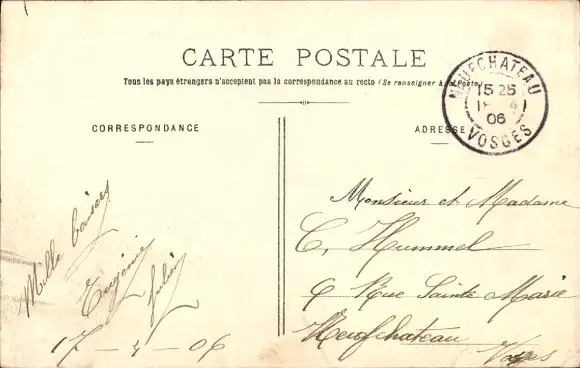 CARTE POSTALE
Tous les pays étrangers n'acceptent pas la correspondance au recto (Se renseigner à la Poste)
CORRESPONDANCE
ADRESSE
NEUFCHATEAU
15 25
18 4
06
VOSGES
Mille baisers
Eugénie
Julien
17 - 4 - 06
Monsieur et Madame
C. Hummel
9 Rue Sainte Marie
Neufchateau
Vosges